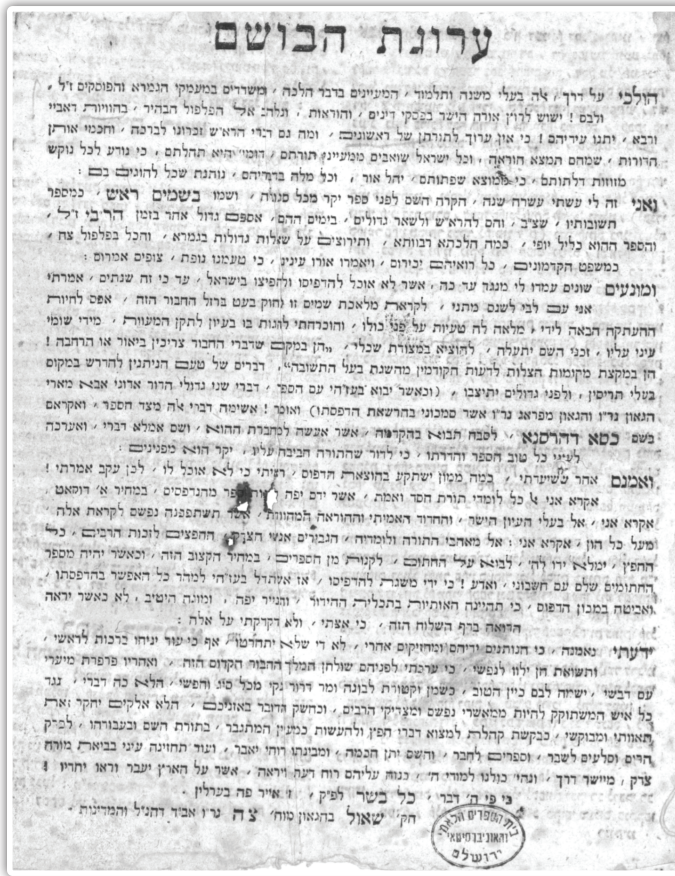 ערוגת הבושם
הולכי על דרך, אלה בעלי משנה ותלמוד, המעיינים בדבר הלכה, ומשדדים במעמקי הגמרא והפוסקים ז"ל,
ולבם ! ישוש לרוץ אורח הישר בפסקי דינים, והוראות, ונלהב אל הפלפול הבהיר, בהוויות דאביי
ורבא, יתנו עידיהם ! כי אין ערוך לתורתן של ראשונים, ומה גם דברי הרא"ש זכרונו לברכה, וחכמי אותן
הדורות, שמהם תמצא הוראה, וכל ישראל שואבים ממעייני תורתם, דומי' היא תהלתם, כי נודע לכל נוקש
מזוזות דלתותם, כי ממוצא שפתותם, יהל אור, וכל מלה בדבריהם, נותנת שכל להוגים בם :
ואני זה לי עשתי עשרה שנה, הקרה השם לפני ספר יקר מכל סגולה, ושמו בשמים ראש, כמספר
תשובותיו, שצ"ב, והם להרא"ש ולשאר גדולים, בימים ההם, אספם גדול אחד בזמן הרב"י ז"ל,
והספר ההוא כליל יופי, כמה הלכתא רבוותא, ותירוצים על שאלות גדולות בגמרא, והכל בפלפול צח,
כמשפט הקדמונים, כל רואיהם יכירום, ויאמרו אורו עינינו, כי טעמנו נופת, צופים אמרום :
ומונעים שונים עמדו לי מנגד עד כה, אשר לא אוכל להדפיסו ולהפיצו בישראל, עד כי זה שנתים, אמרתי
אני עם לבי לשנס מתני, לקראת מלאכת שמים זו וחוק בעט ברזל החבור הזה, אפס להיות
ההעתקה הבאה לידי, מלאה לה טעיות על פני כולו, והוכרחתי להגות בו בעיון לתקן המעוות, מידי שומי
עיני עליו, זכני השם יתעלה, להוציא במצודת שכלי, הן במקום שדברי החבור צריכין ביאור או הרחבה !
הן במקצת מקומות הצלות לדעות הקודמין מהשגת בעל התשובה, דברים של טעם הניתנין להדרש במקום
בעלי תריסין, ולפני גדולים יתיצבו, (וכאשר יבוא בעז"הי עם הספר, דברי שני גדולי הדור אדוני אבא מארי
הגאון נר"ו והגאון מפראג נר"ו אשר סמכוני בהרשאת הדפסתו) ואומר ! אשימה דברי אלה מצד הספר, ואקראם
בשם כסא דהרסנא, לסבה תבוא בהקדמה, אשר אעשה למחברת ההוא, ושם אמלא דברי, ואערכה
לעיני כל טוב הספר והדרתו, כי לדור שהתורה חביבת עליו, יקר הוא מפנינים :
ואמנם אחר ששיערתי, כמה ממון ישתקע בהוצאת הדפוס, ראיתי כי לא אוכל לו, לכן עקב אמרתי !
אקרא אני כל לומדי תורת חסד ואמת, אשר ידם יפה ספר מהנדפסים, במחיר א' דוסאט,
אקרא אני, אל בעלי העיון הישר, והחדוד האמיתי וההוראה המהוותת, אשר תשתפכנה נפשם לקראת אלה,
מעל כל הון, אקרא אני : אל מאהבי התורה ולומדיה, הנגברים אנשי החפצים לזכות הרבים, כל
החפץ, ימלא ידו לה', לבוא על החתום, לקנות מן הספרים, במחיר הקצוב הזה, וכאשר יהיה מספר
החתומים שלם עם חשבוני, ואדע ! כי ידי משגת להדפיסו, אז אשתדל בעז"הי למהר כל האפשר בהדפסתו,
ואביטה במכון הדפוס, כי תהיינה האותיות בתכלית ההידור, והנייר יפה, ומוגה היטיב, לא כאשר יראה
הרואה בדף השלוח הזה, כי אצתי, ולא דקדקתי על אלה :
ידעתי נאמנה, כי הנותנים ידיהם ומחזיקים אחרי, לא די שלא יתחרטו, אף כי עוד יניחו ברכות לראשי,
ותשואת חן ילוו לנפשי, כי ערכתי לפניהם שולחן המלך החבור הקדום הזה, ואחריו פרפרת מיערי
עם דבשי, ישמח לבם כיין הטוב, כשמן וקטורת לבונה ומר דרור נקי מכל סיג וחפשי, הלא כה דברי, נגד
כל איש המשתוקק להיות ממאשרי נפשם ומצדיקי הרבים, וכחשק הדובר באזניכם, הלא אלקים יחקר זאת
תאוותי ומבוקשי, כבקשת קהלת למצוא דברי חפץ ולהעשות כמעין המתגבר, בתורת השם ובעבורתו, לפרק
הרים וסלעים לשבר, וספרים לחבר, והשם יתן חכמה, ומבינתו רוחי יאבר, ועוד תחזינה עיני בביאת מורה
צדק, מיישר דרך, ונהי' כולנו למודי ה', בנוה עליהם רוח דעת ויראה, אשר על הארץ יעבר וראו יחדיו !
כי פי ה' דבר, כל בשר לפ"ק, ז' אייר פה בערלין.
הק' שאול בהגאון מוה' צ"ה נר"ו אב"ד דהג"ל והמדינות.
בית הספרים הלאמי
והאוניברסיטאי
ירושלם